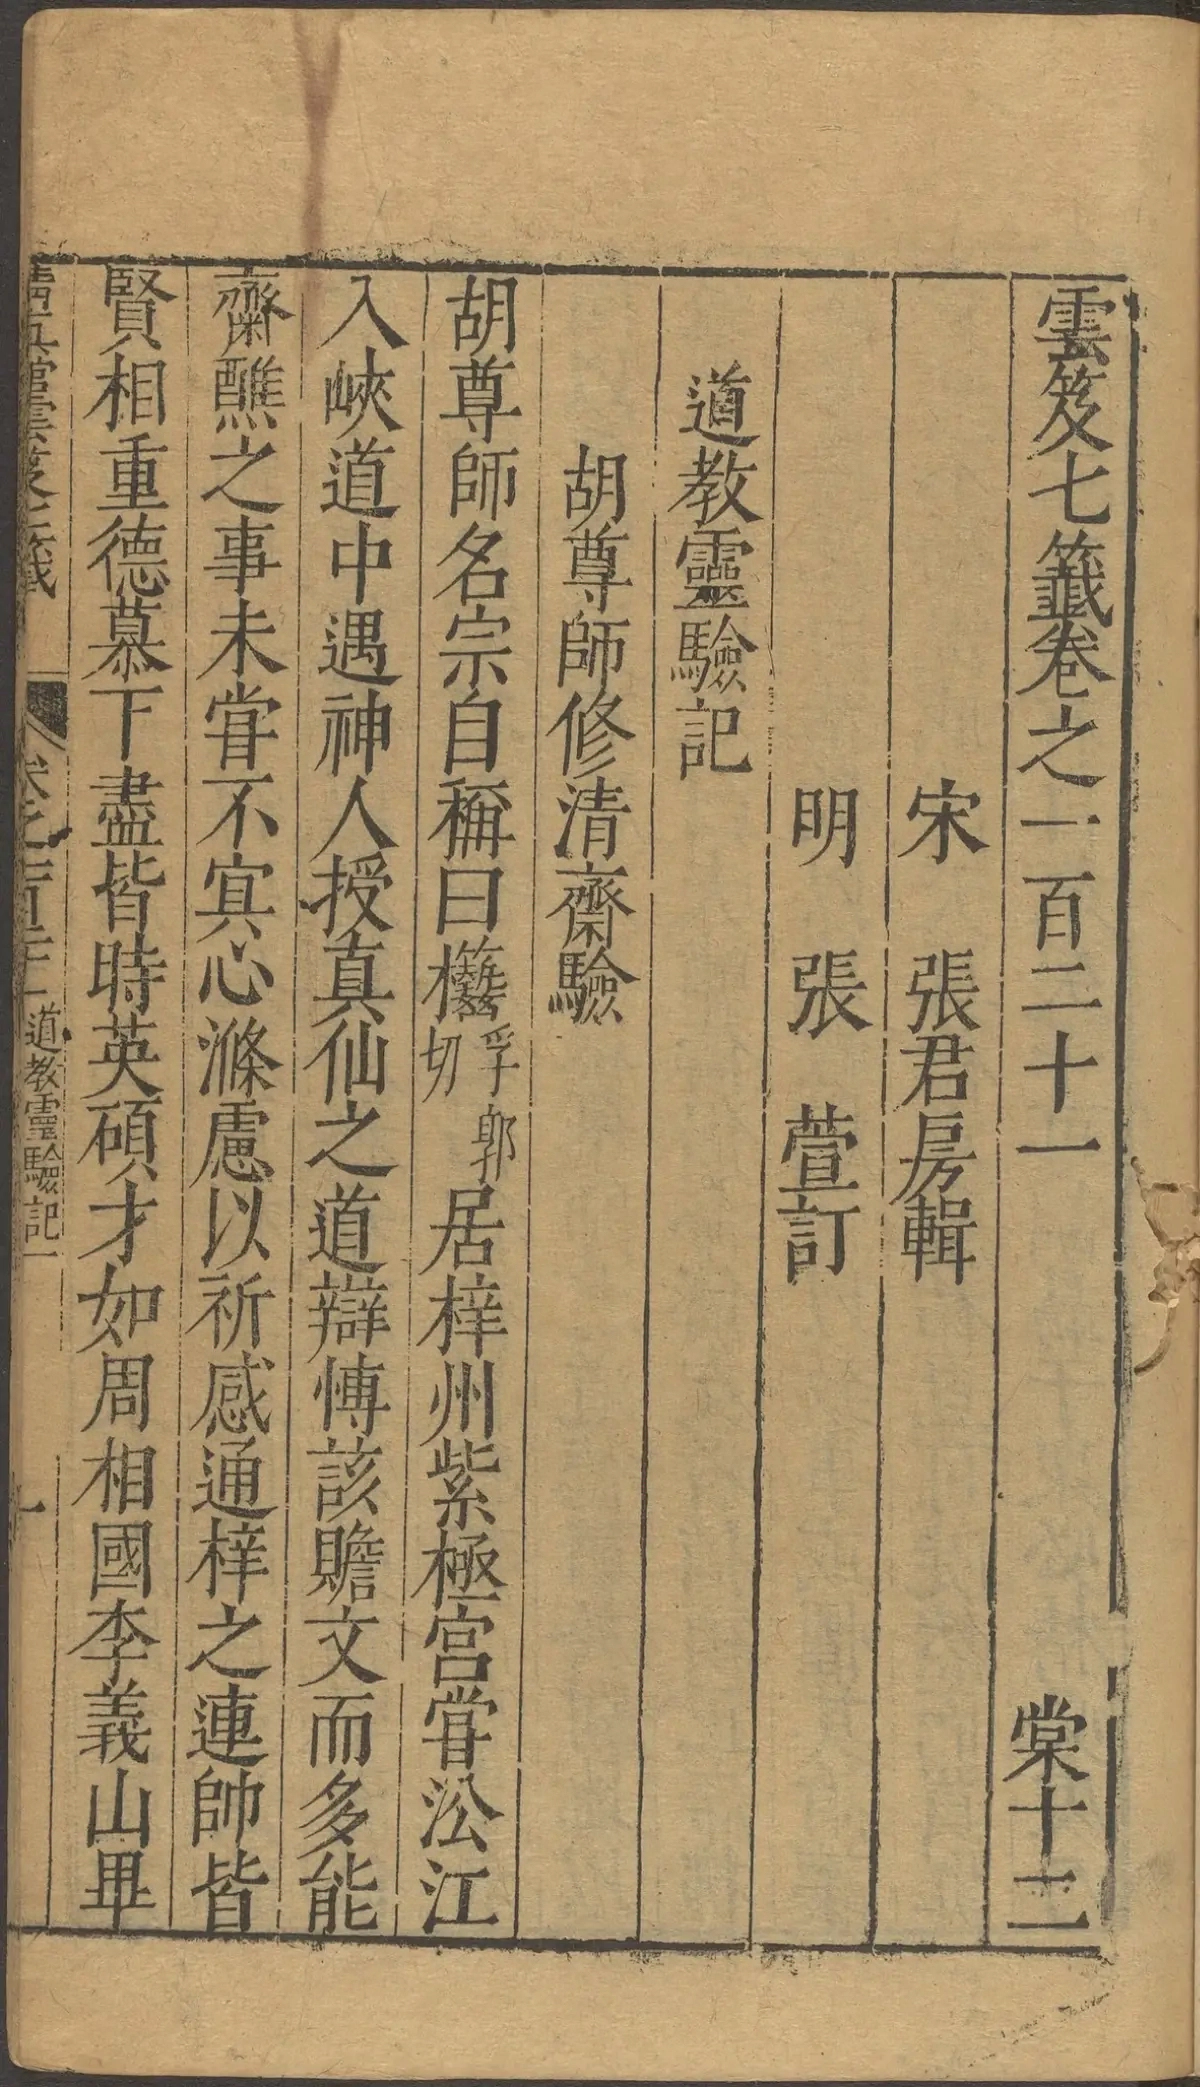 雲笈七籤卷之一百二十一 棠十二
宋 張君房輯
明 張 萱訂
道教靈驗記
胡尊師修清齋驗
胡尊師名宗自稱曰欉孚郭切居梓州紫極宮甞㳂江
入峽道中遇神人授真仙之道辯博該贍文而多能
齋醮之事未甞不寘心滌慮以祈感通梓之連帥皆
賢相重德慕下盡皆時英碩才如周相國李義山畢
清真館雲笈七籤 卷之一百二十一 道教靈驗記一 一